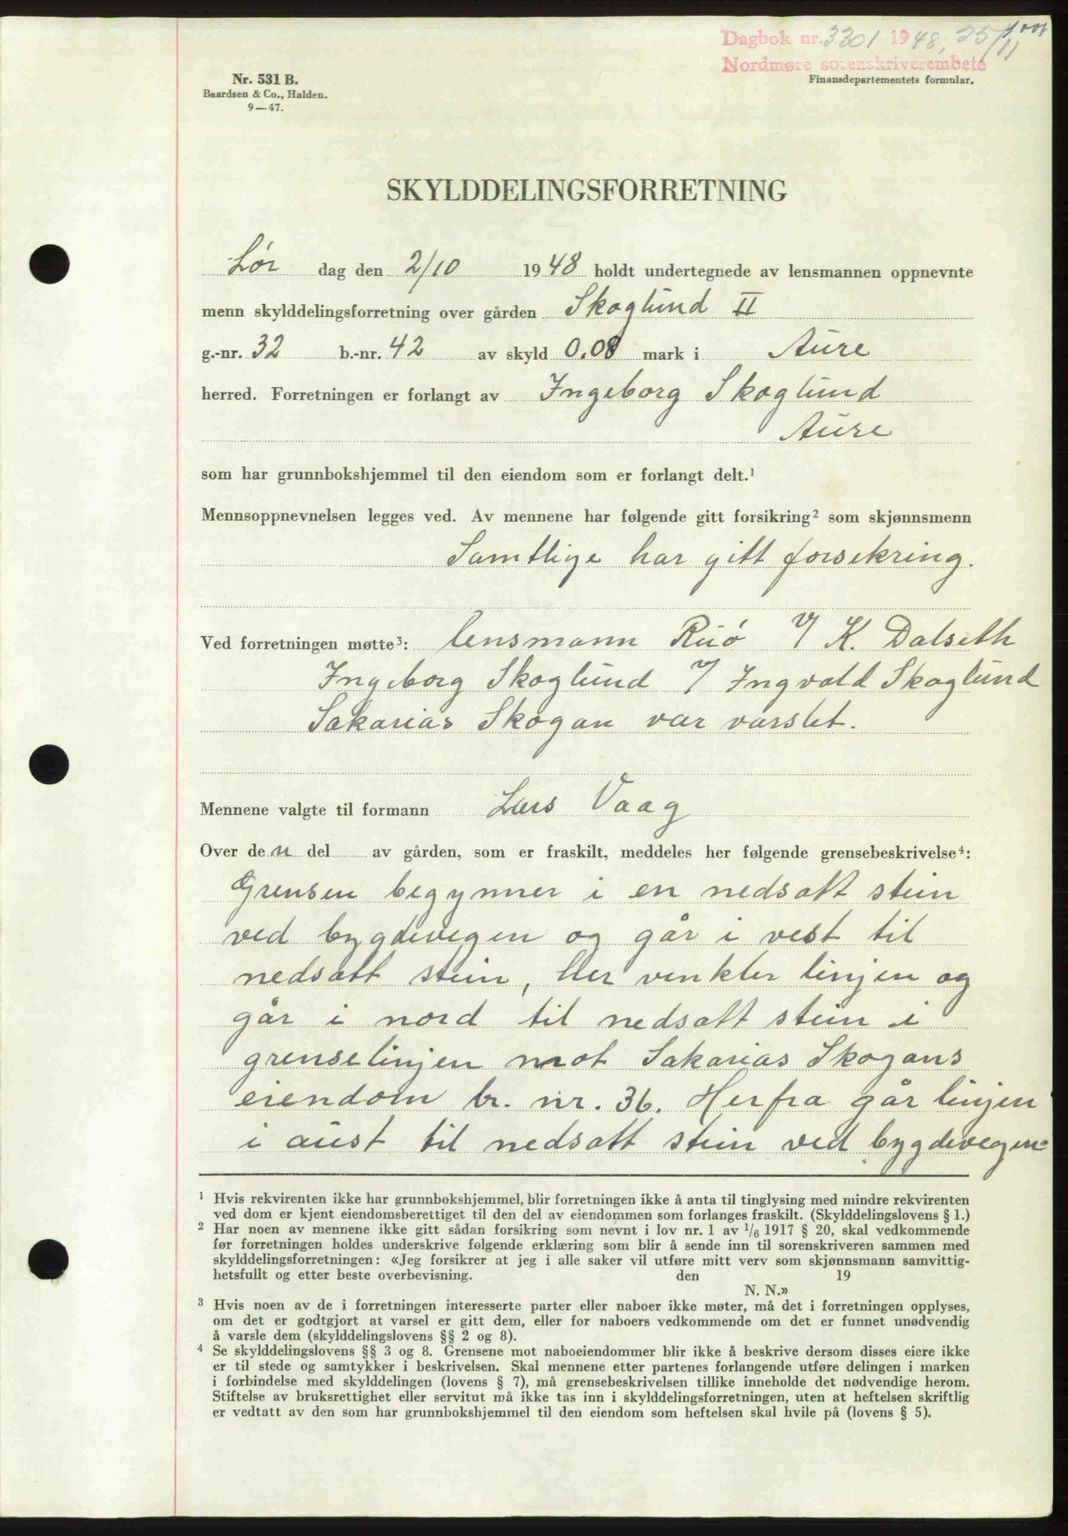 Dagbok nr. 3301 1948, 25/11
Nordmøre sorenskriverembete
Nr. 531 B.
Baardsen & Co., Halden.
9—47.
Finansdepartementets formular.
SKYLDDELINGSFORRETNING
Lør dag den 2/10 1948 holdt undertegnede av lensmannen oppnevnte
menn skylddelingsforretning over gården Skoglund II
g.-nr. 32 b.-nr. 42 av skyld 0.08 mark i Aure
herred. Forretningen er forlangt av Ingeborg Skoglund
Aure
som har grunnbokshjemmel til den eiendom som er forlangt delt.¹
Mennsoppnevnelsen legges ved. Av mennene har følgende gitt forsikring² som skjønnsmenn
Samtlige har gitt forsekring.
Ved forretningen møtte³: lensmann Ruø v/ K. Dalseth
Ingeborg Skoglund v/ Ingvald Skoglund
Sakarias Skogan var varslet.
Mennene valgte til formann Lars Vaag
Over den del av gården, som er fraskilt, meddeles her følgende grensebeskrivelse⁴:
Grensen begynner i en nedsatt stein
ved bygdevegen og går i vest til
nedsatt stein, her venkler linjen og
går i nord til nedsatt stein i
grenselinjen mot Sakarias Skogans
eiendom br. nr. 36. Herfra går linjen
i aust til nedsatt stein ved bygdevegen
¹ Hvis rekvirenten ikke har grunnbokshjemmel, blir forretningen ikke å anta til tinglysing med mindre rekvirenten
ved dom er kjent eiendomsberettiget til den del av eiendommen som forlanges fraskilt. (Skylddelingslovens § 1.)
² Har noen av mennene ikke gitt sådan forsikring som nevnt i lov nr. 1 av 1/6 1917 § 20, skal vedkommende
før forretningen holdes underskrive følgende erklæring som blir å sende inn til sorenskriveren sammen med
skylddelingsforretningen: «Jeg forsikrer at jeg i alle saker vil utføre mitt verv som skjønnsmann samvittig-
hetsfullt og etter beste overbevisning. den 19
N. N.»
³ Hvis noen av de i forretningen interesserte parter eller naboer ikke møter, må det i forretningen opplyses,
om det er godtgjort at varsel er gitt dem, eller for naboers vedkommende om det er funnet unødvendig
å varsle dem (skylddelingslovens §§ 2 og 8).
⁴ Se skylddelingslovens §§ 3 og 8. Grensene mot naboeiendommer blir ikke å beskrive dersom disses eiere ikke
er til stede og samtykker i beskrivelsen. Skal mennene etter partenes forlangende utføre delingen i marken
i forbindelse med skylddelingen (lovens § 7), må grensebeskrivelsen tillike inneholde det nødvendige herom.
Stiftelse av bruksrettighet eller servitut må ikke tas inn i skylddelingsforretningen, uten at heftelsen skriftlig
er vedtatt av den som har grunnbokshjemmel til den eiendom som heftelsen skal hvile på (lovens § 5).